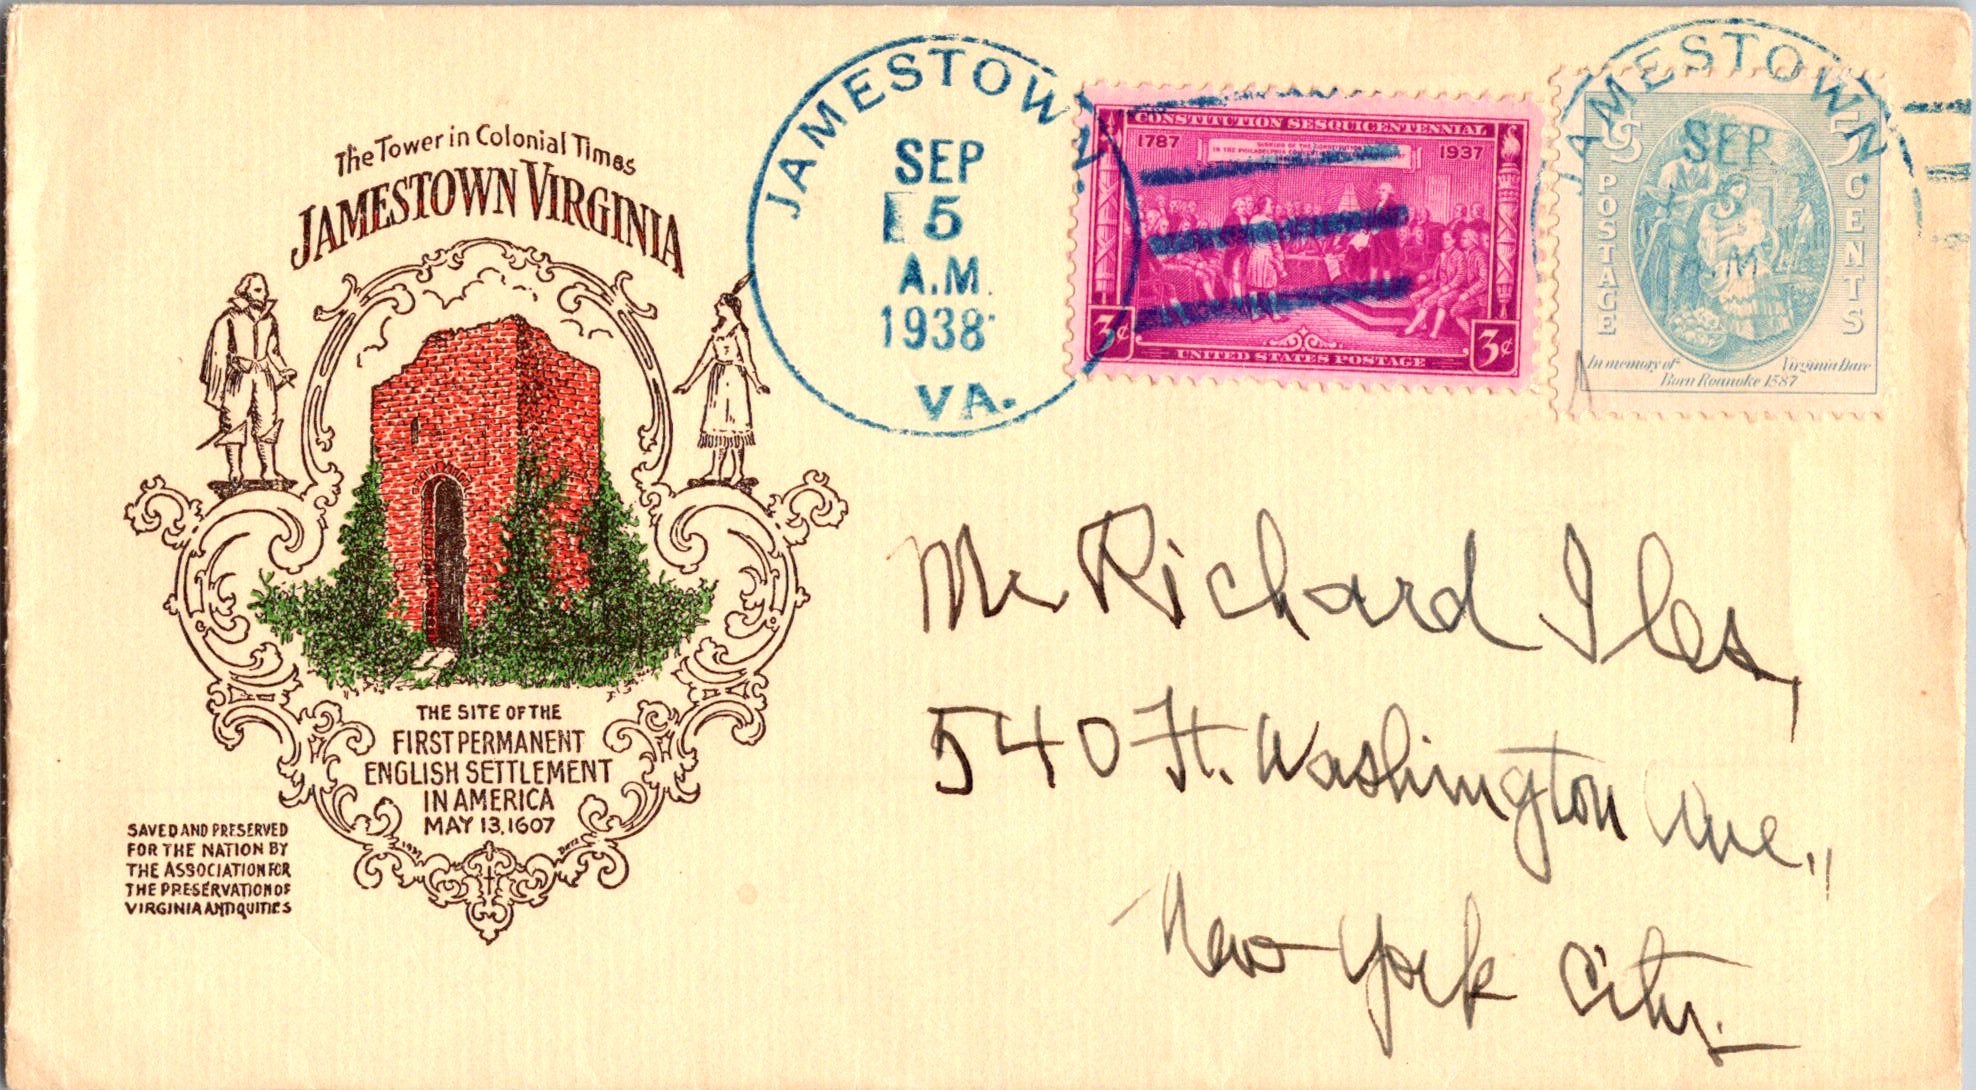 The Tower in Colonial Times
JAMESTOWN VIRGINIA
THE SITE OF THE
FIRST PERMANENT
ENGLISH SETTLEMENT
IN AMERICA
MAY 13, 1607
SAVED AND PRESERVED
FOR THE NATION BY
THE ASSOCIATION FOR
THE PRESERVATION OF
VIRGINIA ANTIQUITIES
JAMESTOWN
SEP
5
A.M.
1938
VA.
CONSTITUTION SESQUICENTENNIAL
1787
1937
3¢
3¢
UNITED STATES POSTAGE
JAMESTOWN
SEP
5
5
POSTAGE
CENTS
In memory of Virginia Dare
Born Roanoke 1587
Mr Richard Iles,
540 Ft. Washington Ave.,
New York City.